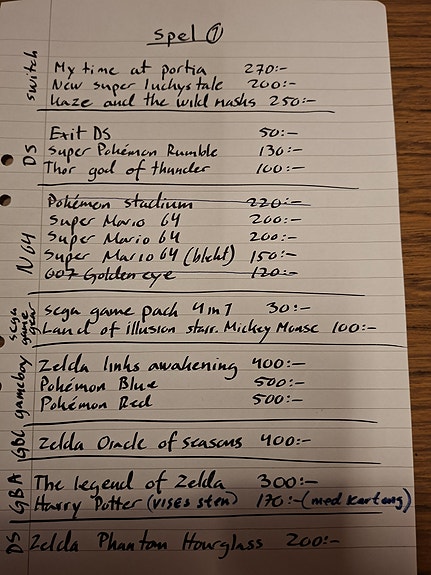 Spel 1
Switch
My time at portia 270:-
New super luckys tale 200:-
Kaze and the wild masks 250:-
DS
Exit DS 50:-
Super Pokémon Rumble 130:-
Thor god of thunder 100:-
N64
Pokémon stadium 220:-
Super Mario 64 200:-
Super Mario 64 200:-
Super Mario 64 (blekt) 150:-
007 Goldeneye 120:-
sega game gear
sega game pack 4 in 1 30:-
Land of illusion starr. Mickey Mouse 100:-
gameboy
Zelda links awakening 400:-
Pokémon Blue 500:-
Pokémon Red 500:-
GBC
Zelda Oracle of seasons 400:-
GBA
The legend of Zelda 300:-
Harry Potter (vises sten) 170:- (med kartong)
DS
Zelda Phantom Hourglass 200:-